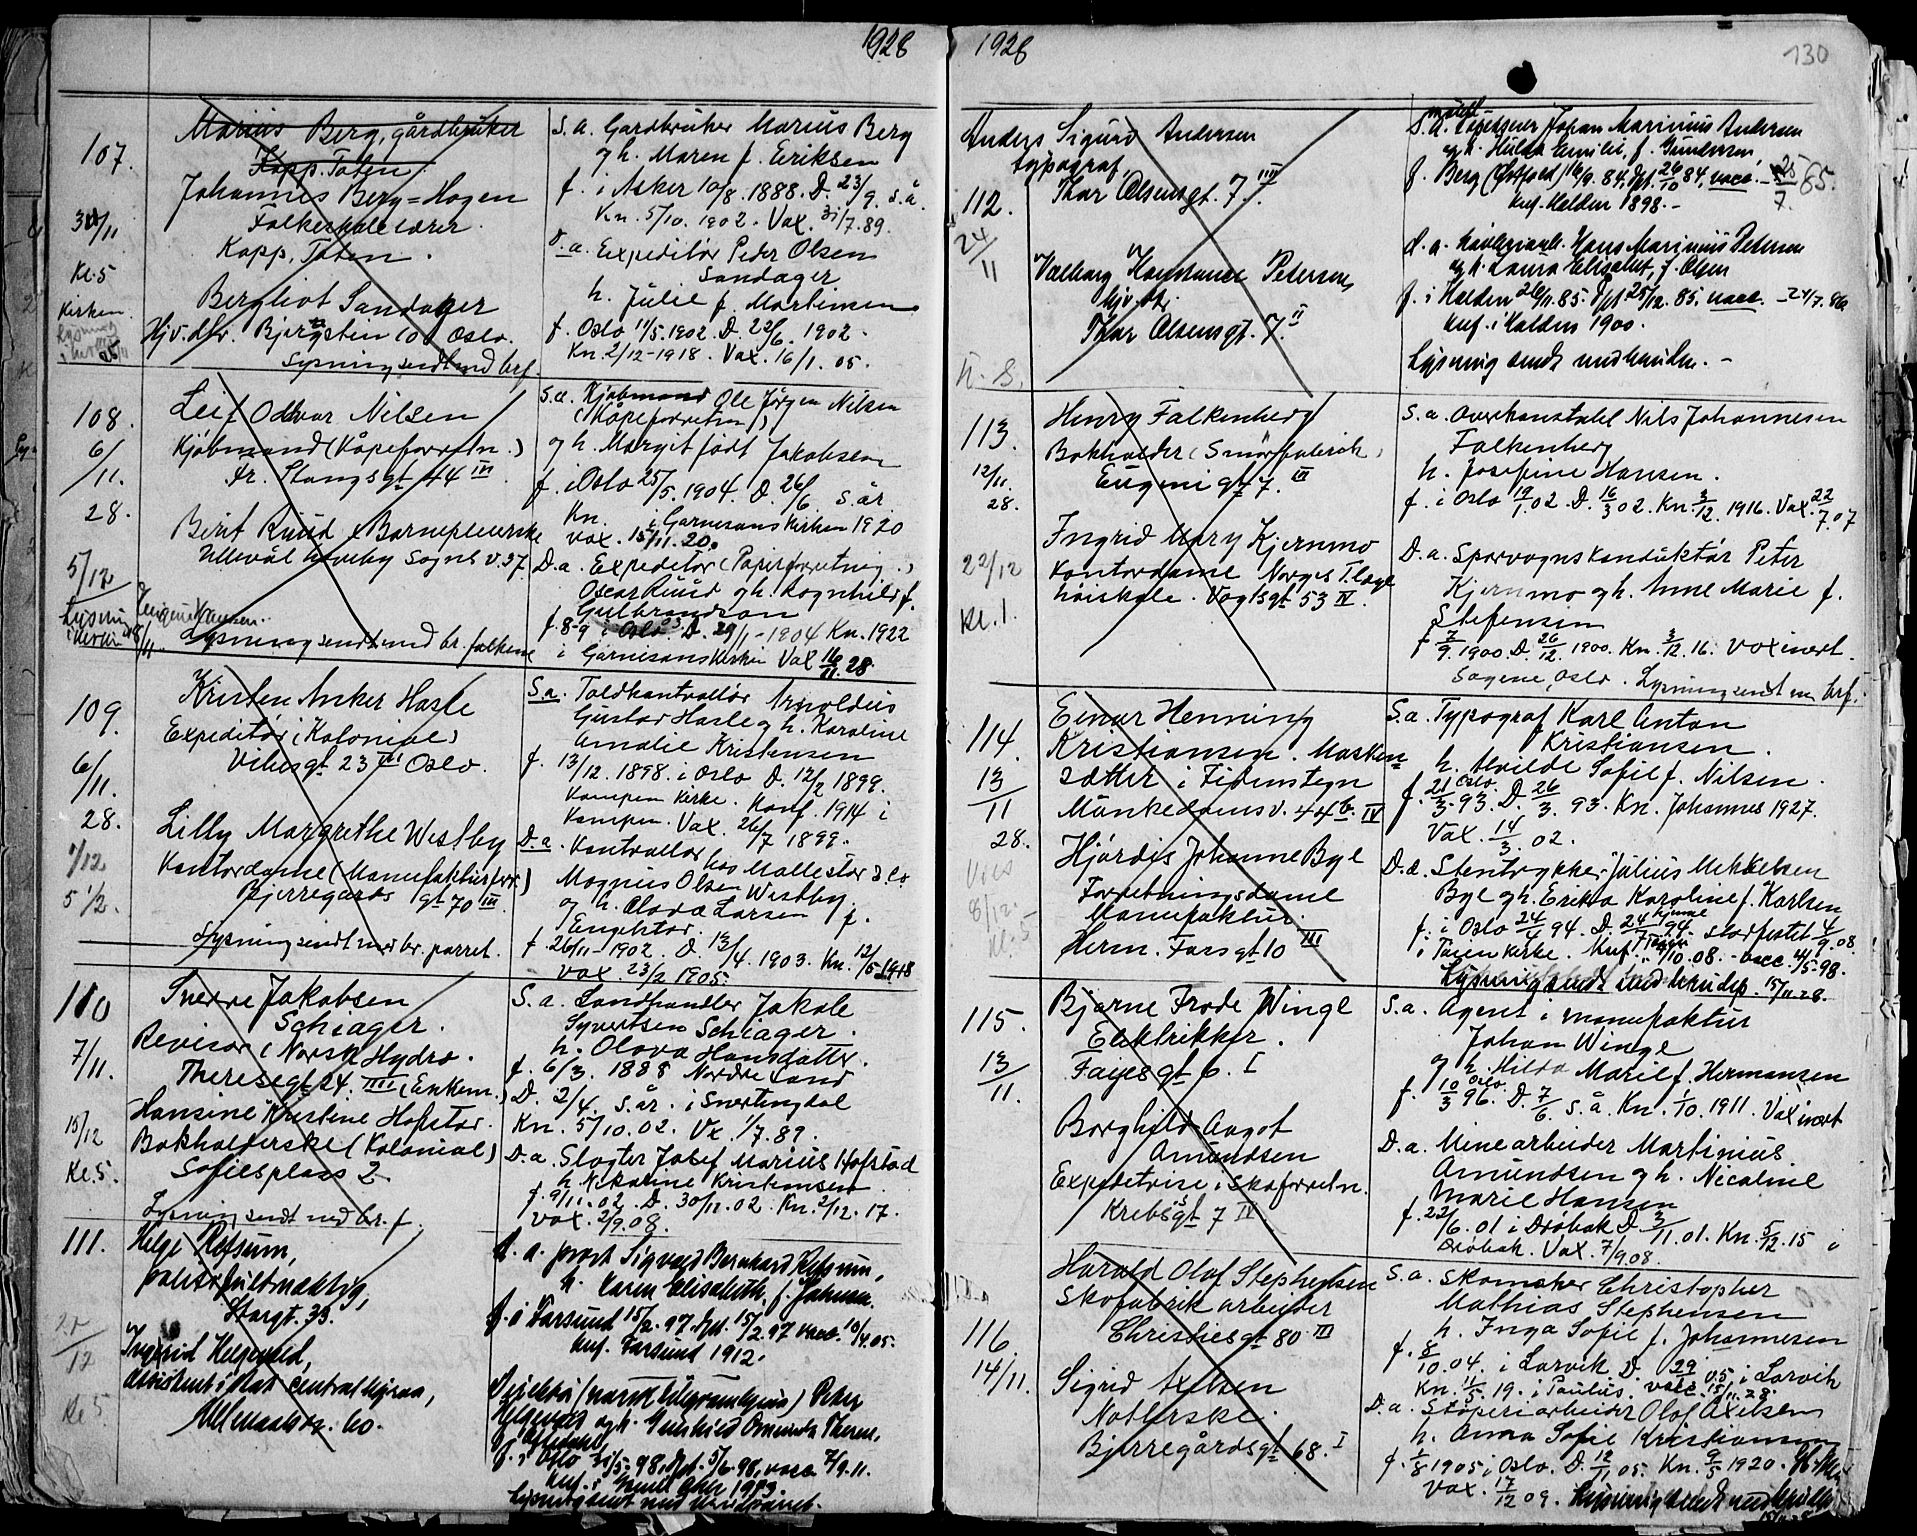 1928
107.
30/11
Kl. 5
Kirken.
Marius Berg, gårdbruker
Kapp. Toten
Johannes Berg=Hagen
Folkeskolelærer
Kapp, Toten.
Bergliot Sandager
Hjv. dtr. Bjergsten 60 Oslo.
Lysning sendt med brf.
S. a. Gardbruker Marius Berg
og h. Maren f. Eriksen
f. i Asker 10/8. 1888. D. 23/9. s. å.
Kn. 5/10. 1902. Vax. 31/7.89.
D. a. Expeditør Peder Olsen
Sandager
h. Julie f. Martinsen
f. Oslo 11/5.1902. D. 22/6. 1902.
Kn. 2/12-1918. Vax. 16/1. 05.
108.
6/11.
28.
5/12
Lysning
Leif Odvar Nilsen
Kjøbmand (Kåpeforretn.)
Dr. Stangs gt 44 IV
Berit Ruud, Barnepleierske
Ullevål haveby Sogns v. 37
Lysning sendt med br. folkene
S. a. Kjøbmand Ole Jørgen Nilsen
(Kåpeforretn.)
og h. Margit født Jakobsen
f. i Oslo 25/5. 1904. D. 26/6 s. år
Kn. i Garnisons Kirken 1920
Vax. 15/11. 20.
D. a. Expeditør (Papirforretning.)
Oscar Ruud og h. Ragnhild f.
Gulbrandson
f. 8-9 i Oslo 03. D. 29/1-1904 Kn. 1922
i Garnisonskirken Vax 16/11. 28
109.
6/11.
28.
Kristen Anker Hasle
Expeditør (Kolonial)
Vibes gt 23 III Oslo.
Lilly Margrethe Westby
Kontordame (Manufakturforr.)
Bjerregårds gt 70 III.
Lysning sendt med br. parret.
S. a. Toldkontrollør Arnoldus
Gustav Hasle og h. Karoline
Amalie Kristensen
f. 13/12. 1898. i Oslo D. 12/2 1899.
Kampen Kirke. Konf. 1914 i
Kampen. Vax. 26/7 1899.
D. a. Kontrollør hos Møllestor & Co
Magnus Olsen Westby
og h. Olava Larsen f.
Engelstor.
f 26/11-1902. D 13/4. 1903. Kn. 12/5 1918
Vax 23/2 1905.
110
7/11.
15/12
Kl. 5.
Sverre Jakobsen
Schiager.
Revisor (Norsk Hydro.
Therese gt 24. IIII (Enkem.)
Hansine Kristine Hofstad.
Bokholderske (Kolonial)
Sofies plass 2
Lysning sendt med br. f.
S. a. Landhandler Jakob
Syvertsen Schiager.
h. Olava Hansdatter.
f. 6/3. 1888 Nordre Land
D. 2/4. s. år. i Snertingdal
Kn. 5/10. 02. Vx. 1/7.89.
D. a. Slagter Josef Marius Hofstad
h Nikoline Kristiansen
f. 9/11. 02. D. 30/11. 02. Kn. 2/12. 17.
Vax. 2/9.08.
111.
Kl 5.
Helge Refsum,
politifuldmektig,
Storgt. 33.
Ingrid Helgesed,
assistent i Stat. centralbyraa,
Ullevaalsv. 60.
S. a. prost Sigvald Bernhard Refsum,
h. Karen Elisabeth, f. Johnsen.
f. i Farsund 15/2. 97. døpt. 15/2 97 vacc. 10/4.05.
Knf. Farsund 1912.
f. i Oslo 31/5. 98, døpt. 5/6. 98, vacc 7/9. 11.
1928
130
112.
24/11
Anders Sigurd Andersen
typograf,
Thor Olsensgt. 7. IIII
Valborg Konstance Petersen,
hjv. dtr.
Thor Olsensgt. 7. II
S. a. Johan Marinius Andersen
og h. Hulda Emilie, f. Gundersen,
f. Berg (Østfold) 16/9. 84, dpt. 26/10 84, vacc. 25/7. 85.
Knf. Halden 1898. -
d. a. Hans Marinius Petersen
og h. Laura Elisabet, f. Olsen
f. i Halden 26/11. 85. Dpt 25/12. 85. vacc. - 24/7. 86
Knf. i Halden 1900.
Lysning sendt -
113.
12/11.
28.
22/12
Kl. 1.
Henry Falkenberg
Bokholder (Smørfabrik)
Eugenis gt 7. III
Ingrid Mary Kjernmo
Kontordame Norges T. læge
høiskole. Vogtsgt 53 IV.
S. a. Overkonstabel Nils Johannesen
Falkenberg
h. Josefine Hansen.
f. i Oslo 19/1. 02. D. 16/3 02. Kn. 3/12. 1916. Vax. 22/7.07
D. a. Sporvognskonduktør Peter
Kjernmo og h. Anne Marie f.
Stefensen
f 7/9. 1900. D. 26/12. 1900. Kn. 3/12. 16. Vax invert.
Sagene, Oslo. Lysning sendt m brf.
114.
13/11
28.
8/12.
Kl. 5
Einar Henning
Kristiansen. Maskin=
sætter i Tidenstegn
Munkedamsv. 44 b. IV
Hjørdis Johanne Bye
Forretningsdame
Manufaktur.
Herm. Fossgt 10 III
S. a. Typograf Karl Anton
Kristiansen.
h. Alvilde Sofie f. Nilsen.
f. 21/3. 93. Oslo. D. 26/3. 93. Kn. Johannes 1927.
Vax. 14/3. 02.
D. a. Stentrykker Julius Mikkelsen
Bye og h. Erika Karoline f. Karlsen
f. i Oslo 24/4 94. D. 24/7 94. hjemme stadfestet 4/9.08
i Tøien Kirke. Knf. Tøien 4/10. 08. - vacc. 4/5-98.
15/11 28.
115.
13/11.
Bjarne Frode Winge
Elektrikker.
Fayes gt 6. I
Borghild Aagot
Amundsen
Expeditrise i skoforretn.
Krebs's gt 7 IV
S. a. Agent i manufaktur
Johan Winge
og h. Hilda Marie f. Hermansen
f. 10/3 96. Oslo. D. 7/6. s. å. Kn. 1/10. 1911. Vax invert
D. a. Minearbeider Martinius
Amundsen og h. Nicoline
Marie Hansen
f. 22/6. 01 i Drøbak D. 3/11. 01. Kn. 5/12. 15 i
Drøbak. Vax. 7/9 08.
116.
14/11.
Harald Olaf Stephensen
Skofabrik arbeider
Christiesgt 80 III
Sigrid Axelsen
Natlerske.
Bjerregårdsgt 68. I
S. a. Skomaker Christopher
Mathias Stephensen
h. Inga Sofie f. Johannesen
f. 8/10. 04. i Larvik D. 29/ 05. i Larvik
Kn. 11/5. 19. i Paulus. vacc. 15/11. 28.
D. a. Støperiarbeider Olaf Axelsen
h. Anna Sofie Kristiansen
f. 1/8 1905 i Oslo. D. 12/11 05. Kn. 9/5 1920.
Vax. 17/12 09.